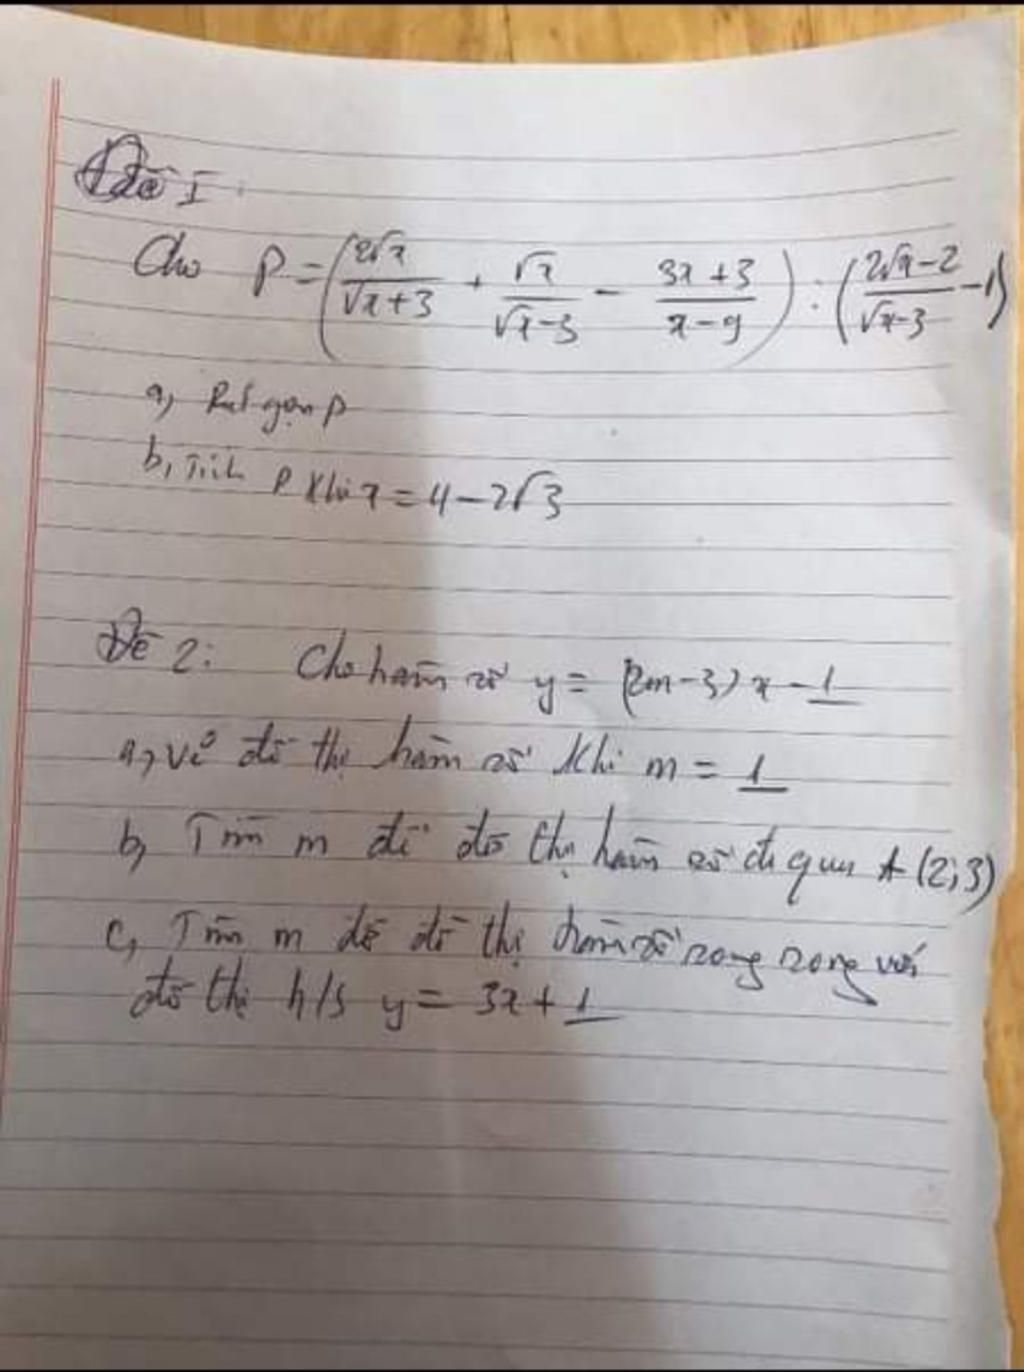 Đề I:
Cho P = (2√x/(√x+3) + √x/(√x-3) - (3x+3)/(x-9)) : ((2√x-2)/(√x-3) - 1)
a, Rút gọn P
b, Tính P khi x = 4-2√3
Đề 2: Cho hàm số y = (2m-3)x-1
a, Vẽ đồ thị hàm số khi m = 1
b, Tìm m để đồ thị hàm số đi qua A(2;3)
c, Tìm m để đồ thị hàm số song song với
đồ thị h/s y = 3x+1